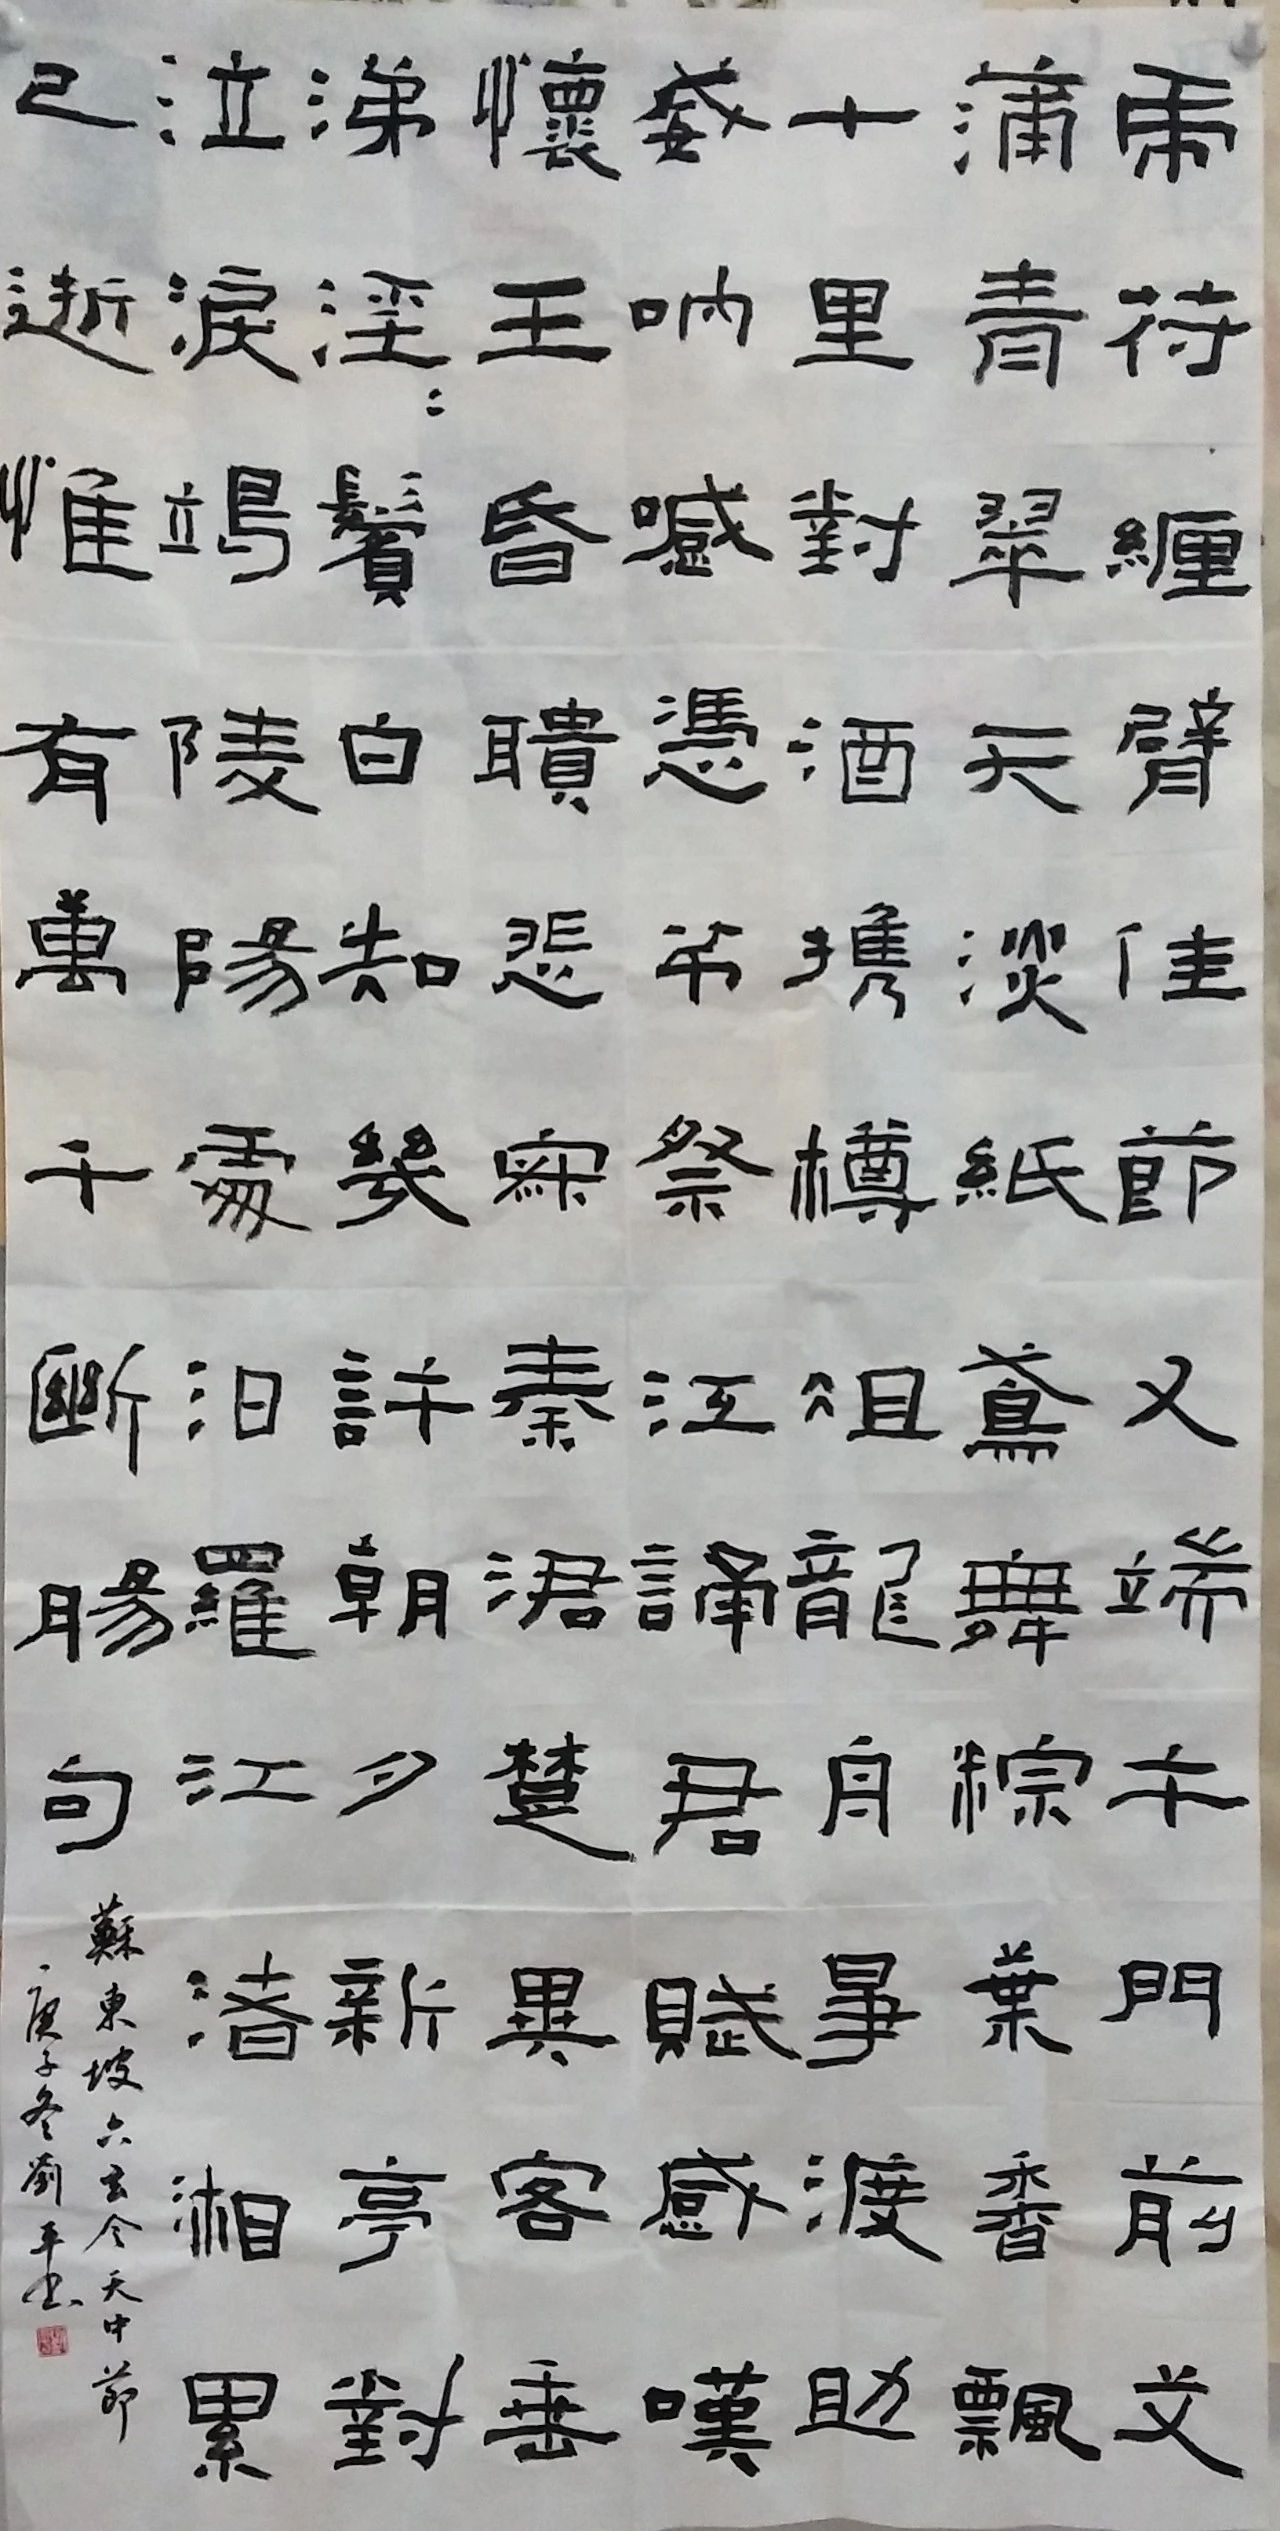 虎符纏臂佳節又端午門前艾
蒲青翠天淡紙鳶舞粽葉香飄
十里對酒携樽俎龍舟事渡助
威吶喊憑弔祭江誦君賦感嘆
懷王昏聵悲宋秦泯楚異客垂
涕淫〻鬢白知幾許朝夕新亭對
泣淚竭陵陽處汨羅江渚湘累
已逝惟有萬千斷腸句
蘇東坡六幺令天中節
庚子冬劉平書